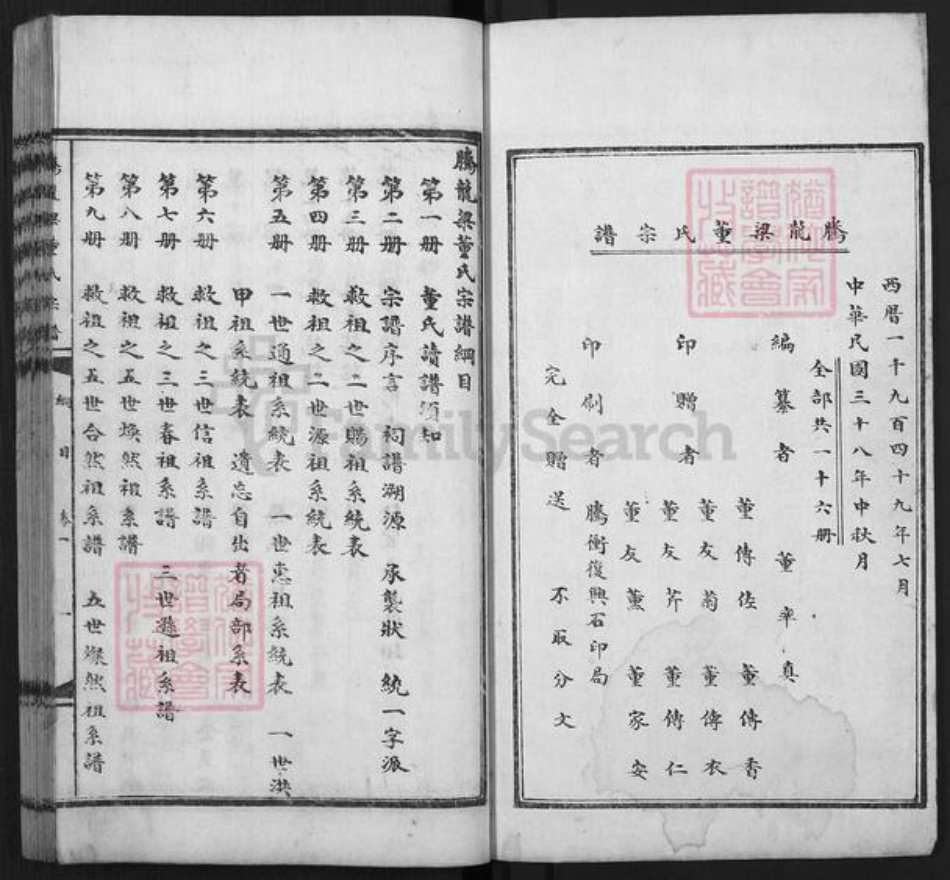 騰龍梁董氏宗譜
西曆一十九百四十九年七月
中華民國三十八年中秋月
全部共一十六册
編纂者 董率真
印贈者 董傳佐 董傳香
董友菊 董傳衣
董友芹 董傳仁
董友薰 董家安
印刷者 騰衝復興石印局
完全贈送 不取分文
騰龍梁董氏宗譜綱目
第一册 董氏讀譜須知
第二册 宗譜序言 祠譜溯源 承襲狀 統一字派
第三册 救祖之二世賜祖系統表
第四册 救祖之二世源祖系統表
第五册 一世通祖系統表 一世惠祖系統表 一世洪
甲祖系統表 遺忘自出者局部系表
第六册 救祖之三世信祖系譜
第七册 救祖之三世春祖系譜 三世遜祖系譜
第八册 救祖之五世煥然祖系譜
第九册 救祖之五世合然祖系譜 五世燦然祖系譜
綱目
卷一
一
FamilySearch